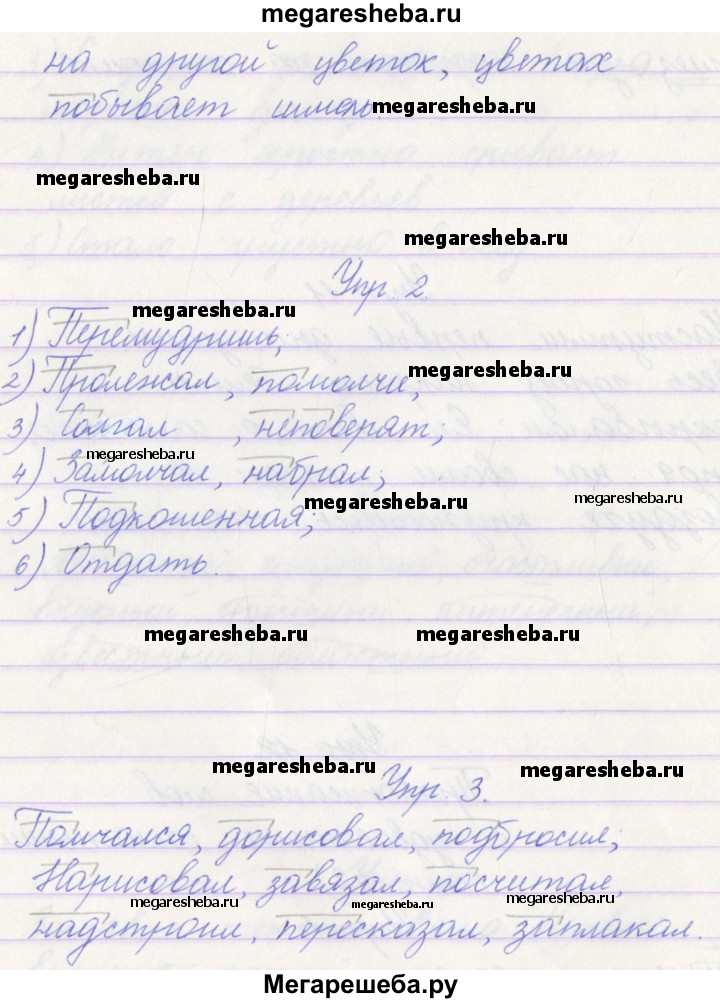 megaresheba.ru
на другой цветок, цветах
побывает шмель. megaresheba.ru
megaresheba.ru
megaresheba.ru
Упр. 2.
megaresheba.ru
1) Перемудришь;
megaresheba.ru
2) Пролежал, помолчи;
3) Солгал , неповерят;
megaresheba.ru
4) Замолчал, набрал;
megaresheba.ru megaresheba.ru
5) Подкошенная;
6) Отдать.
megaresheba.ru megaresheba.ru
megaresheba.ru megaresheba.ru
Упр. 3.
Помчался, дорисовал, подбросил;
Нарисовал, завязал, посчитал,
megaresheba.ru megaresheba.ru megaresheba.ru
надстроил, пересказал, заплакал.
Мегарешеба.ру